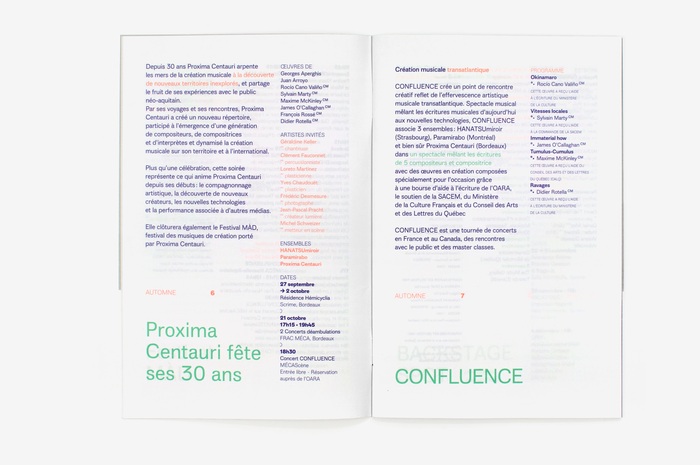 Depuis 30 ans Proxima Centauri arpente
les mers de la création musicale à la découverte
de nouveaux territoires inexplorés, et partage
le fruit de ses expériences avec le public
néo-aquitain.
Par ses voyages et ses rencontres, Proxima
Centauri a créé un nouveau répertoire,
participé à l'émergence d'une génération
de compositeurs, de compositrices
et d'interprètes et dynamisé la création
musicale sur son territoire et à l'international.
Plus qu'une célébration, cette soirée
représente ce qui anime Proxima Centauri
depuis ses débuts : le compagnonnage
artistique, la découverte de nouveaux
créateurs, les nouvelles technologies
et la performance associée à d'autres médias.
Elle clôturera également le Festival MÀD,
festival des musiques de création porté
par Proxima Centauri.
AUTOMNE 6
Proxima
Centauri fête
ses 30 ans
ŒUVRES DE
Georges Aperghis
Juan Arroyo
Rocio Cano Valiño CM
Sylvain Marty CM
Maxime McKinley CM
James O'Callaghan CM
François Rossé CM
Didier Rotella CM
ARTISTES INVITÉS
ENSEMBLES
HANATSUmiroir
Paramirabo
Proxima Centauri
DATES
27 septembre
→ 2 octobre
Résidence Hémicyclia
Scrime, Bordeaux
21 octobre
17h15 - 19h45
2 Concerts déambulations
FRAC MÉCA, Bordeaux
18h30
Concert CONFLUENCE
MÉCAScène
Entrée libre : Réservation
auprès de l'OARA
Création musicale transatlantique
CONFLUENCE crée un point de rencontre
créatif reflet de l'effervescence artistique
musicale transatlantique. Spectacle musical
mêlant les écritures musicales d'aujourd'hui
aux nouvelles technologies, CONFLUENCE
associe 3 ensembles : HANATSUmiroir
(Strasbourg), Paramirabo (Montréal)
et bien sûr Proxima Centauri (Bordeaux)
dans un spectacle mêlant les écritures
de 5 compositeurs et compositrice
avec des œuvres en création composées
spécialement pour l'occasion grâce
à une bourse d'aide à l'écriture de l'OARA,
le soutien de la SACEM, du Ministère
de la Culture Français et du Conseil des Arts
et des Lettres du Québec
CONFLUENCE est une tournée de concerts
en France et au Canada, des rencontres
avec le public et des master classes.
AUTOMNE 7
CONFLUENCE
PROGRAMME
Okinamaro
Rocio Cano Valiño CM
Vitesses locales
Sylvain Marty CM
Immaterial how
James O'Callaghan CM
Tumulus-Cumulus
Maxime McKinley CM
Ravages
Didier Rotella CM